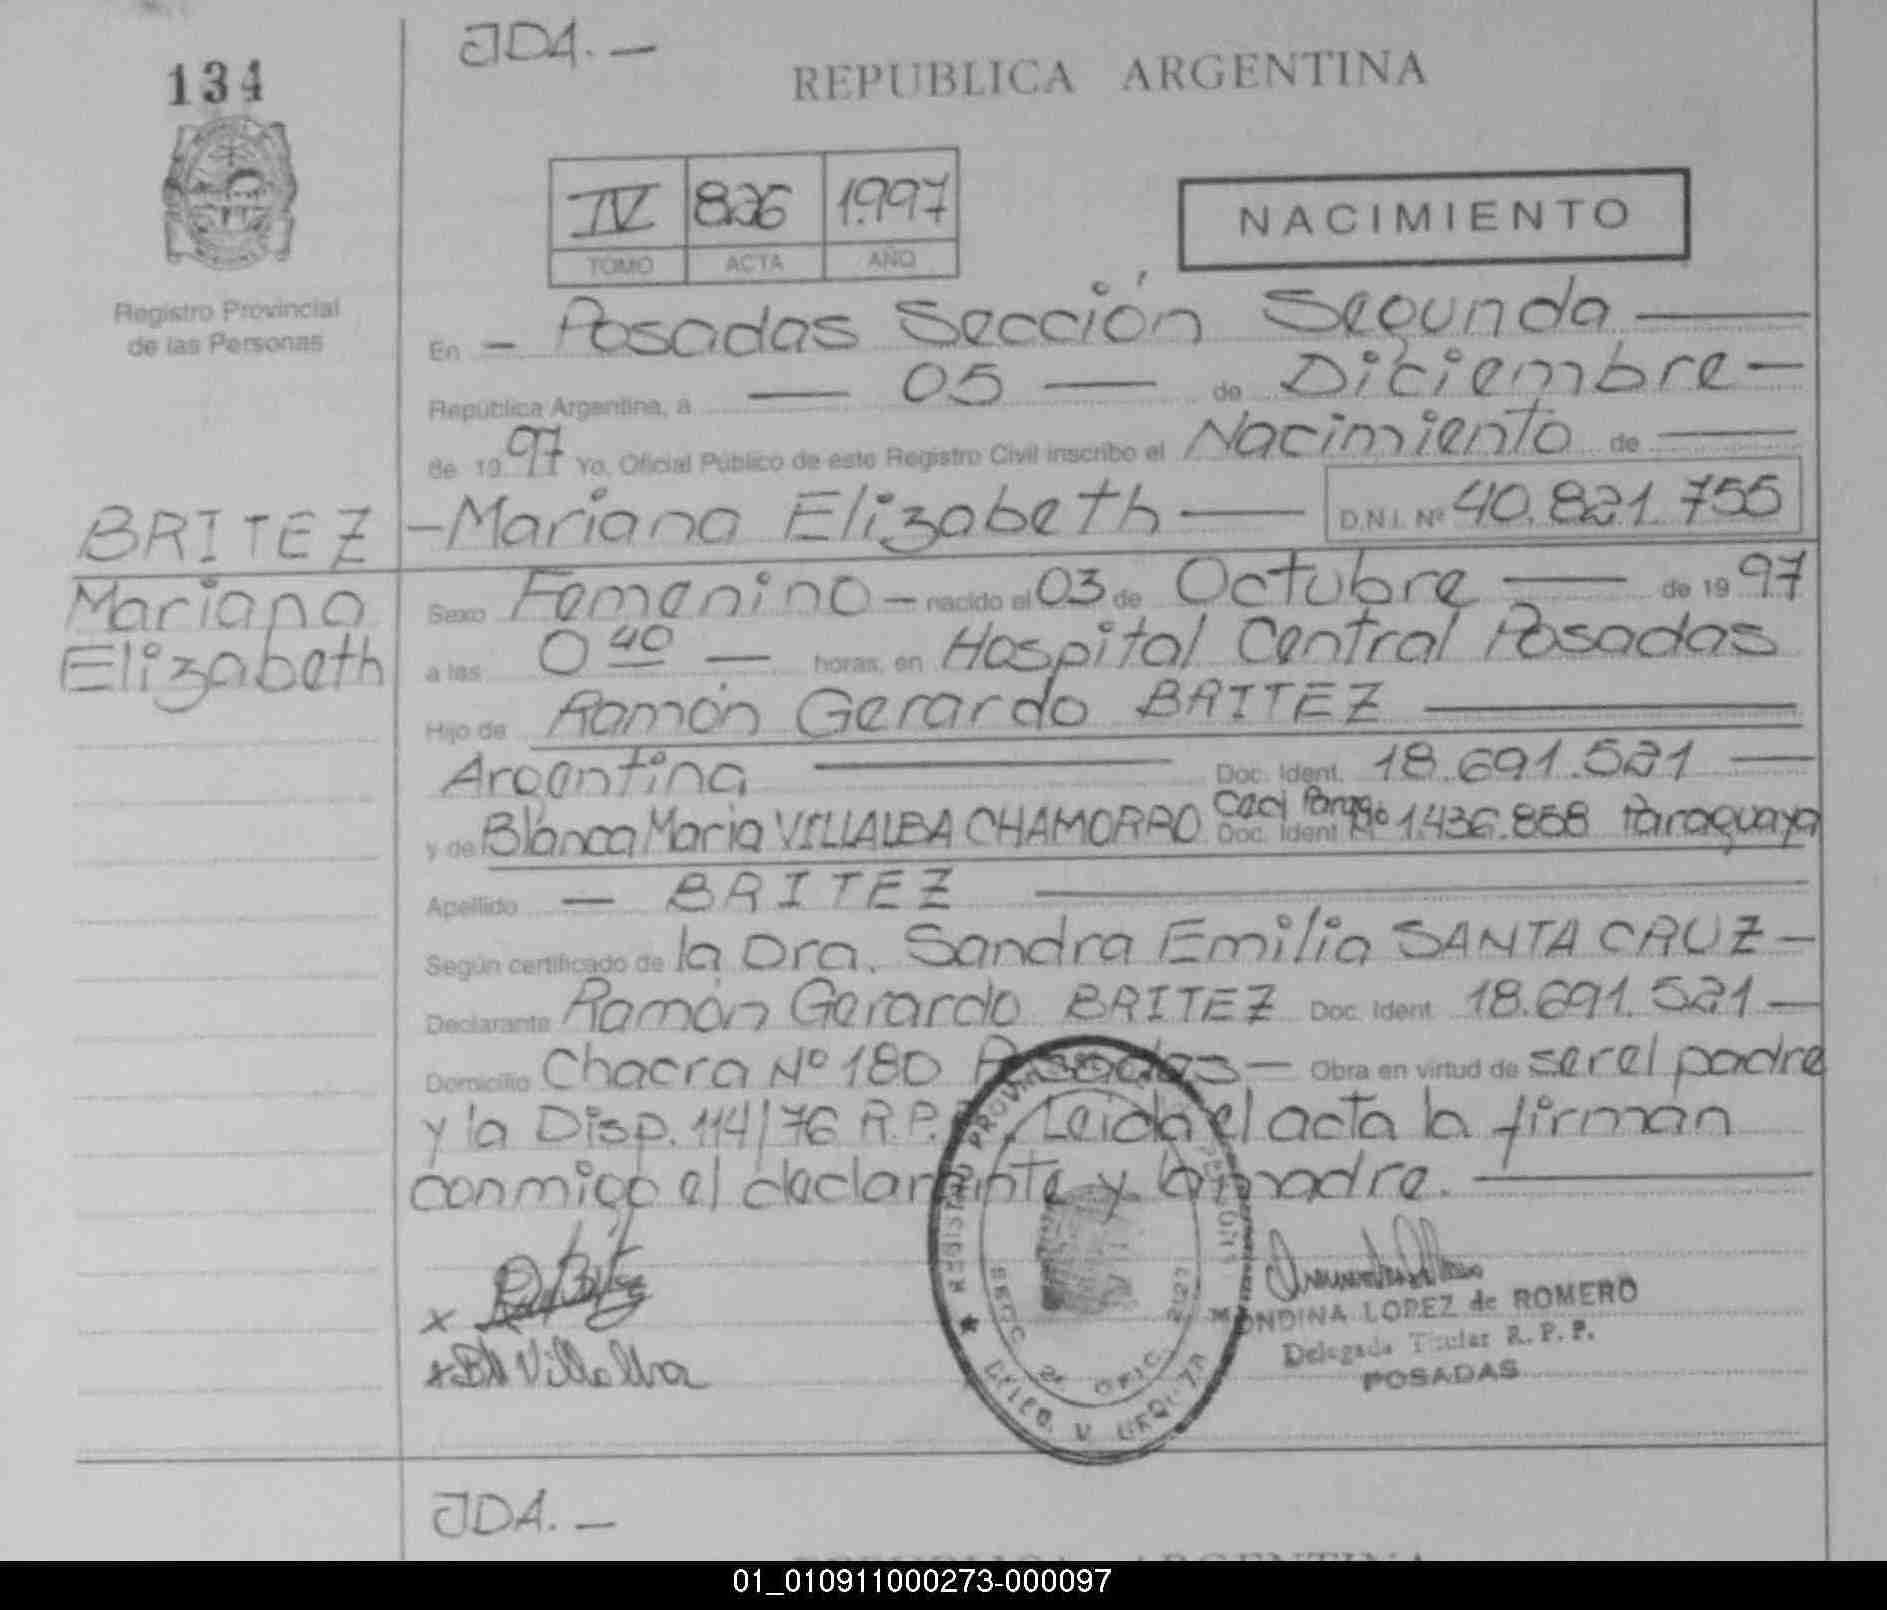 134
JDA. —
REPUBLICA ARGENTINA
IV 826 1997
TOMO ACTA AÑO
NACIMIENTO
Registro Provincial
de las Personas
En — Posadas Sección Segunda —
República Argentina, a — 05 — de Diciembre —
de 1997 Yo, Oficial Público de este Registro Civil inscribo el Nacimiento de —
BRITEZ
Mariana
Elizabeth
— Mariana Elizabeth — D.N.I. Nº 40.821.755
Sexo Femenino — nacido el 03 de Octubre — de 1997
a las 0 40 — horas, en Hospital Central Posadas
Hijo de Ramón Gerardo BRITEZ —
Argentina — Doc. Ident. 18.691.521 —
y de Blanca Maria VILLALBA CHAMORRO Doc. Ident 1.436.858 Paraguaya
Apellido — BRITEZ —
Según certificado de la Dra. Sandra Emilia SANTA CRUZ —
Declarante Ramón Gerardo BRITEZ Doc. Ident. 18.691.521 —
Domicilio Chacra Nº 180 Posadas — Obra en virtud de ser el padre
y la Disp. 114/76 R.P.P. Leida el acta la firman
conmigo el declarante y la madre. —
x
x BM Villalba
REGISTRO
SECC 2ª OFIC.
DELEG. V. URQUIZA
ONDINA LOPEZ de ROMERO
Delegada Titular R. P. P.
POSADAS
JDA. —
REPUBLICA ARGENTINA
01_010911000273-000097